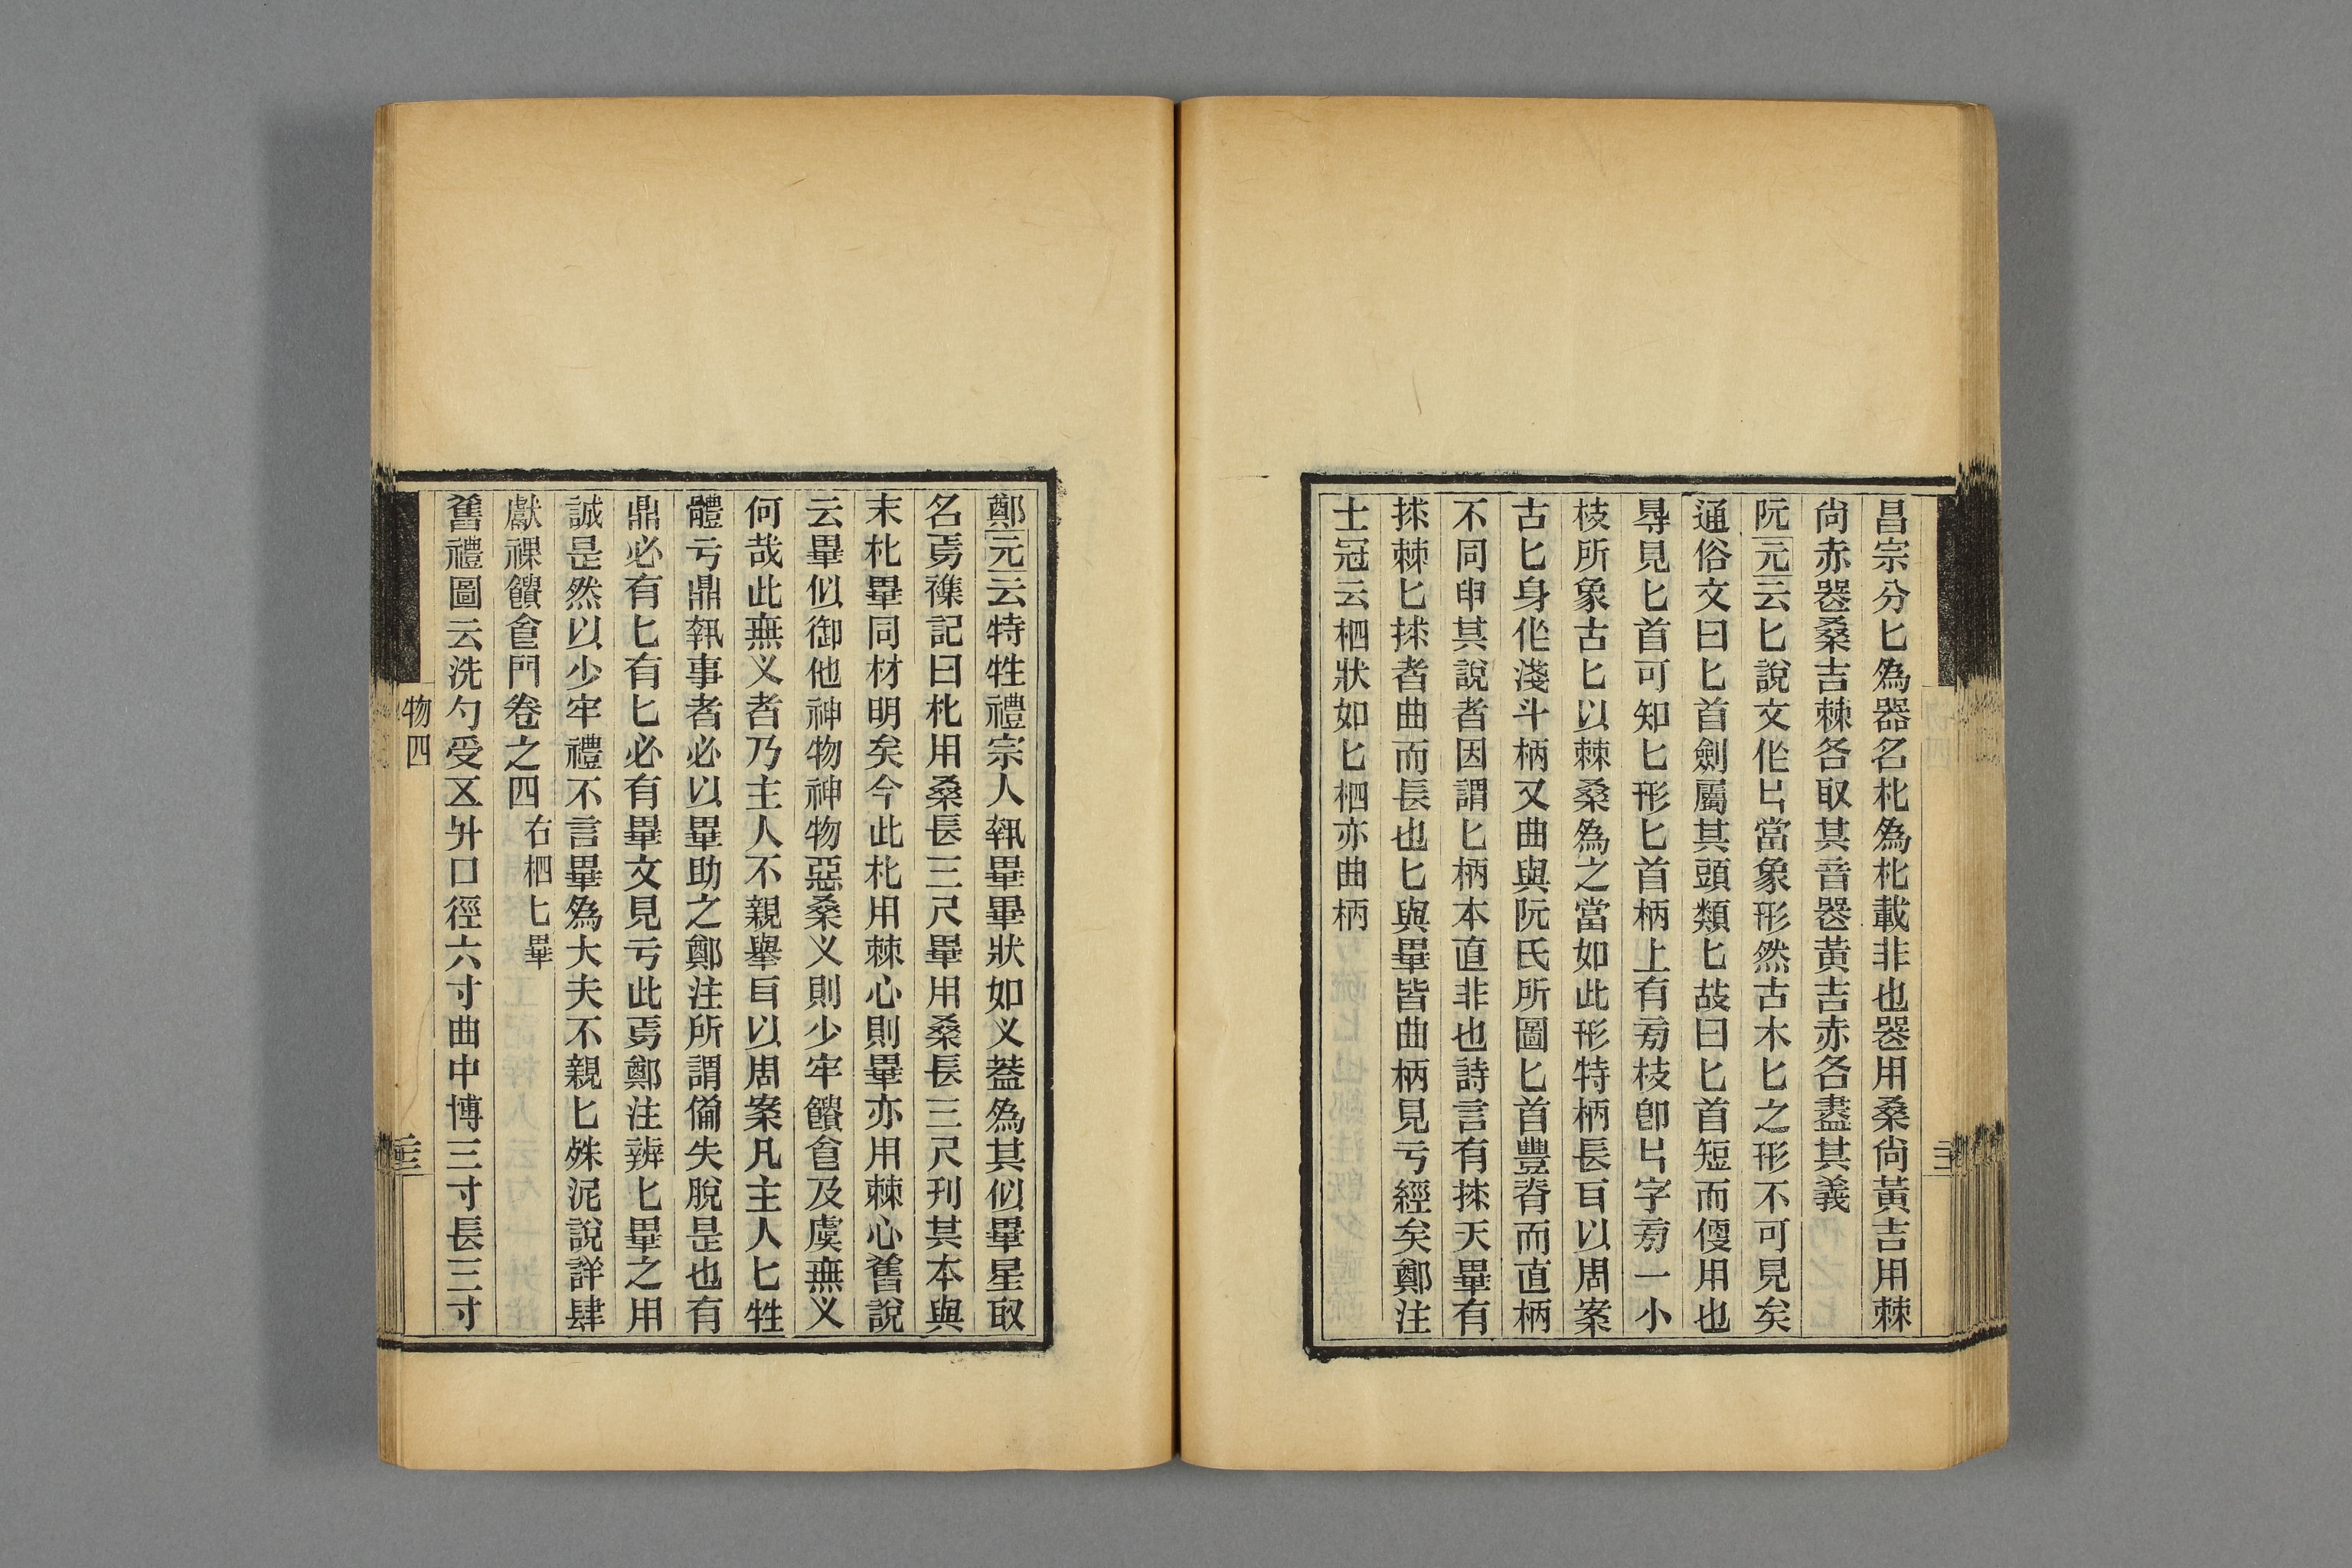 昌宗分匕為器名朼為朼載非也器用桑尙黃吉用棘
尙赤器桑吉棘各取其音器黃吉赤各盡其義
阮元云匕說文作𠤎當象形然古木匕之形不可見矣
通俗文曰匕首劍屬其頭類匕故曰匕首短而便用也
㝵見匕首可知匕形匕首柄上有㫄枝卽𠤎字㫄一小
枝所象古匕以棘桑為之當如此形特柄長百以周案
古匕身作淺斗柄又曲與阮氏所圖匕首豐脊而直柄
不同申其說者因謂匕柄本直非也詩言有捄天畢有
捄棘匕捄者曲而長也匕與畢皆曲柄見亏經矣鄭注
士冠云柶狀如匕柶亦曲柄
鄭元云特牲禮宗人執畢畢狀如义葢為其似畢星取
名焉襍記曰朼用桑長三尺畢用桑長三尺刊其本與
末朼畢同材明矣今此朼用棘心則畢亦用棘心舊說
云畢似御他神物神物惡桑义則少牢饋食及虞無义
何哉此無义者乃主人不親舉百以周案凡主人匕牲
體亏鼎執事者必以畢助之鄭注所謂僃失脫是也有
鼎必有匕有匕必有畢文見亏此焉鄭注辨匕畢之用
誠是然以少牢禮不言畢為大夫不親匕殊泥說詳肆
獻祼饋食門卷之四 右柶匕畢
舊禮圖云洗勺受五升口徑六寸曲中博三寸長三寸
物四